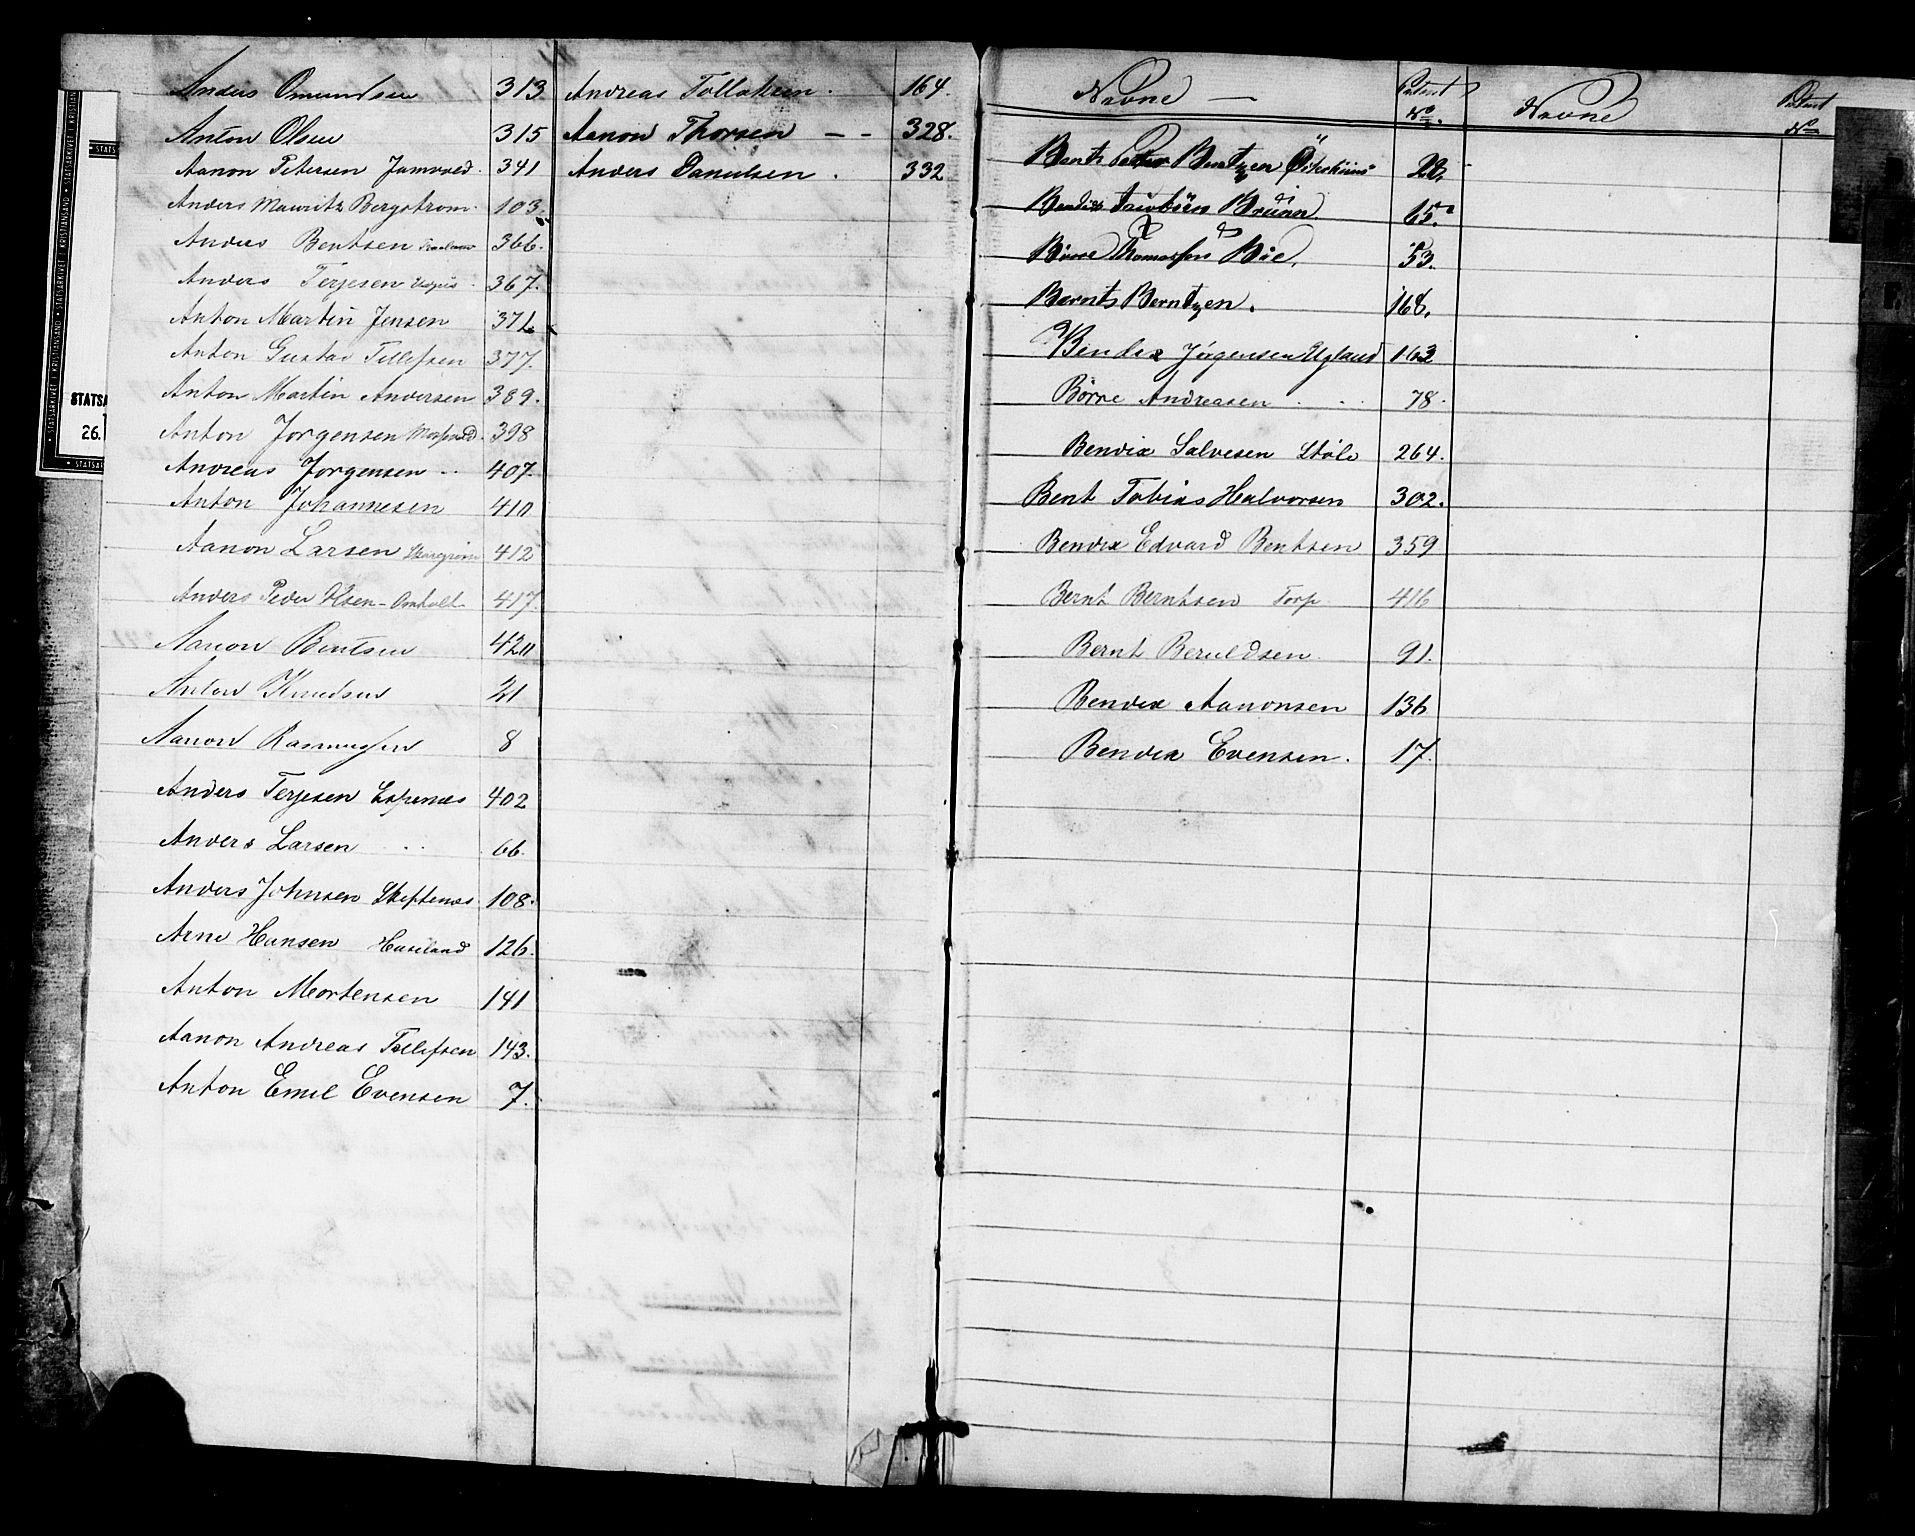 Anders Omundsen 313
Anton Olsen 315
Aanon Petersen 341
Anders Mauritz Bergstrom 103
Anders Bentsen 366.
Anders Terjesen 367.
Anton Martin Jensen 371
Anton Gustav Tellefsen 377.
Anton Martin Andersen 389.
Anton Jørgensen 398
Andreas Jørgensen 407.
Anton Johannesen 410
Aanon Larsen 412
Anders Peder Olsen - Omholt 417.
Aanon Bentsen 420
Anton Knudsen 21
Aanon Rasmussen 8
Anders Terjesen Espenæs 402
Anders Larsen 66.
Anders Johnsen Skiftenæs 108.
Arne Hansen Haseland 126.
Anton Mortensen 141
Aanon Andreas Tellefsen 143.
Anton Emil Evensen 7.
Andreas Tollaksen. 164.
Aanon Thorsen - - 328.
Anders Danielsen. 332
Navne - Patent No.
Bent Bentzen 22.
Bendix Jacobsen 65.
Børre Thomassen Bie. 53.
Bernt Berntzen. 168.
Bendix Jørgensen Ugland 163
Børre Andreasen 78.
Bendix Salvesen Støle 264.
Bent Tobias Halvorsen 302.
Bendix Edvard Bentsen 359
Bernt Berntsen Torp 416
Bernt Beruldsen 91.
Bendix Aanonsen 136
Bendix Evensen. 17.
Navne Patent No
STATSARKIVET I KRISTIANSAND
STATSA
26.